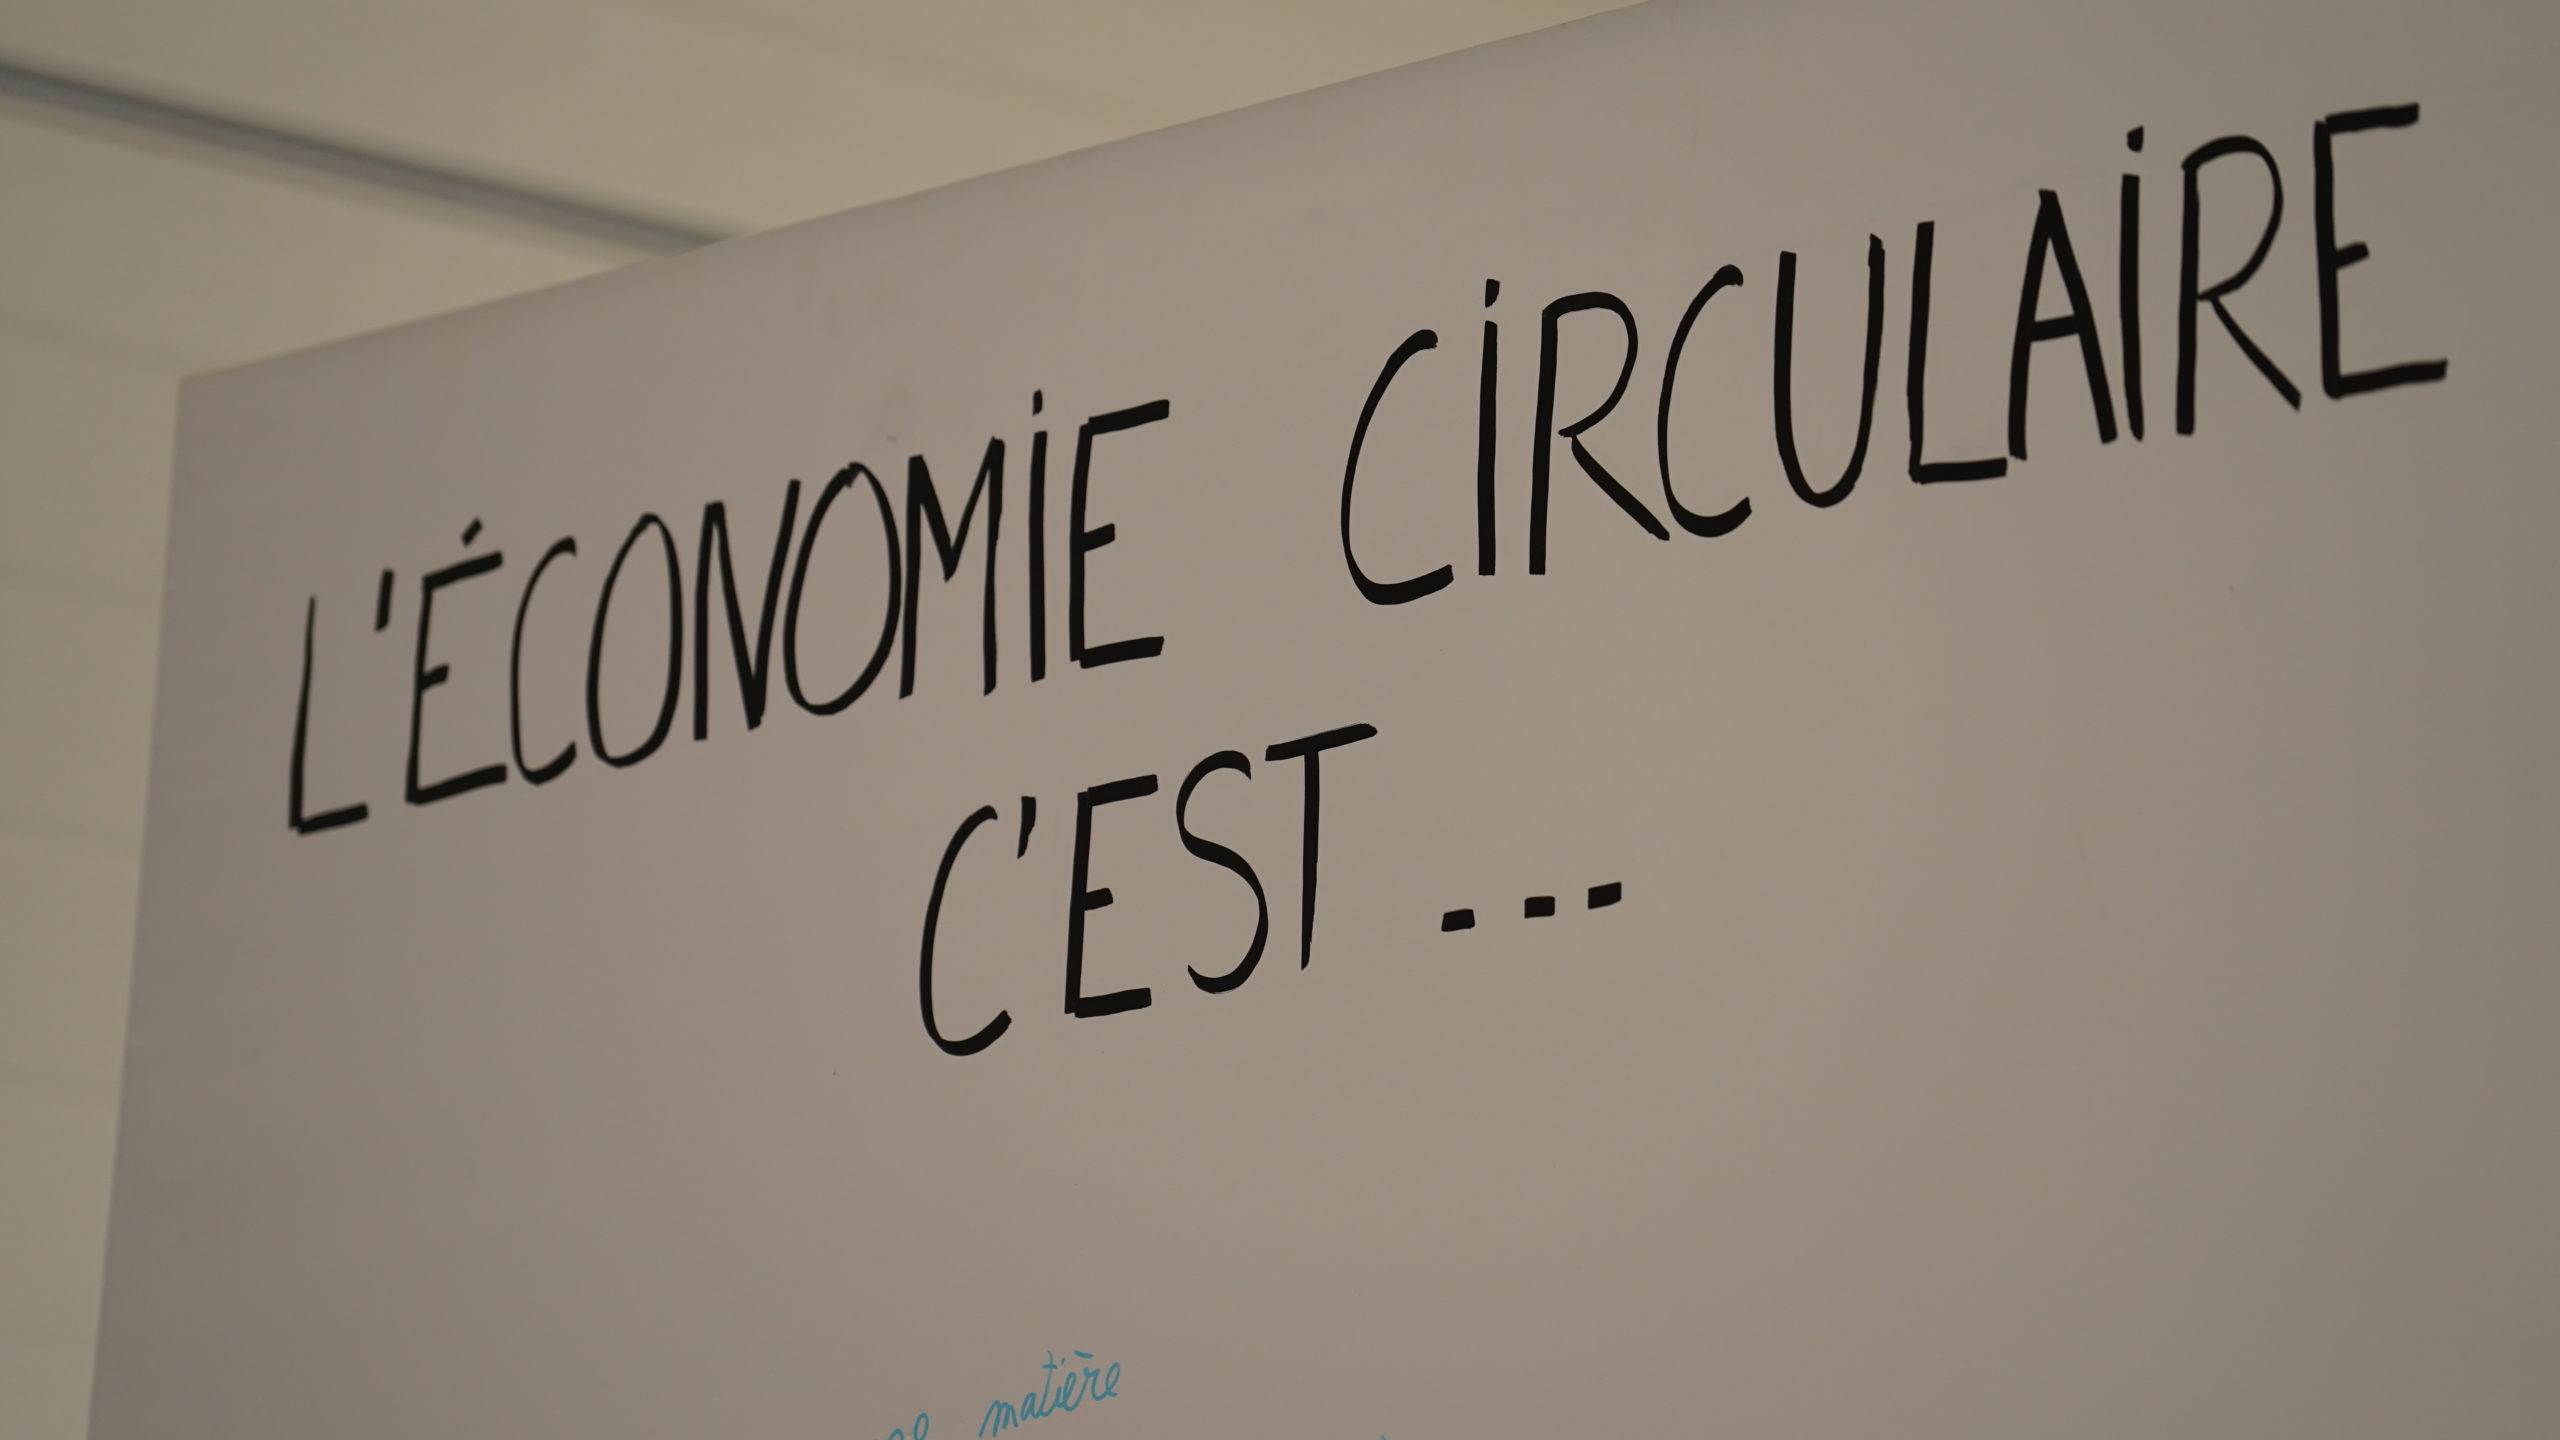 L'ÉCONOMIE CIRCULAIRE
C'EST ...
matière